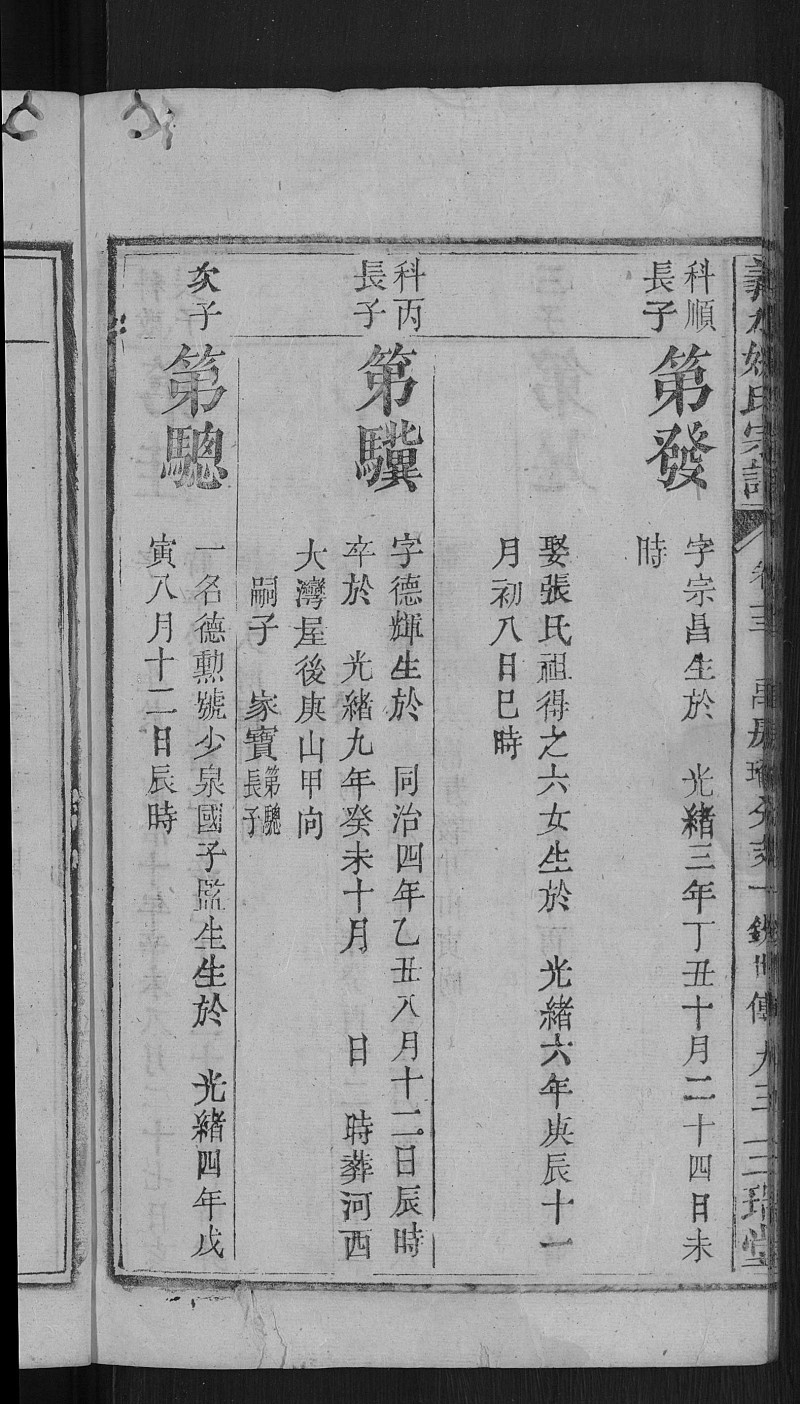 氏宗譜
科順
長子
第發
字宗昌生於 光緒三年丁丑十月二十四日未
時
娶張氏祖得之六女生於 光緒六年庚辰十一
月初八日巳時
科丙
長子
第驥
字德輝生於 同治四年乙丑八月十二日辰時
卒於 光緒九年癸未十月 日 時葬河西
大灣屋後庚山甲向
嗣子 家寶第驄長子
次子
第驄
一名德勳號少泉國子監生生於 光緒四年戊
寅八月十二日辰時